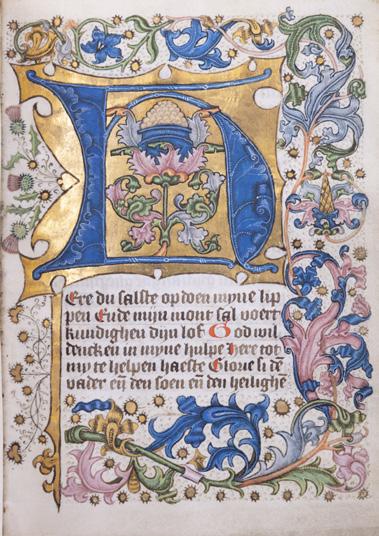 H
Ere du salste op doen myne lip
pen Ende mijn mont sal voert
kundighen dijn lof God wil
dencken in myne hulpe Here tot
my te helpen haeste Glorie si dē
vader eñ den soen eñ den heilighē